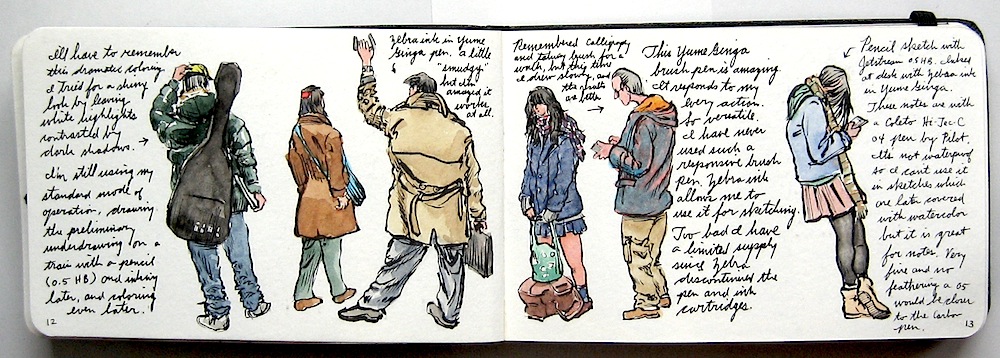 I'll have to remember
this dramatic coloring.
I tried for a shiny
look by leaving
white highlights
contrasted by
dark shadows. →
I'm still using my
standard mode of
operation, drawing
the preliminary
underdrawing on a
train with a pencil
(0.5 HB) and inking
later, and coloring
even later.
12
Zebra ink in Yume
Ginga pen. A little
"smudgy"
but I'm
amazed it
works
at all.
Remembered Calligraphy
and tatsuy brush for a
while, but this time
I drew slowly, and
the results
are better.
This Yume Ginga
brush pen is amazing
It responds to my
every action.
So versatile.
I have never
used such a
responsive brush
pen. Zebra ink
allows me to
use it for sketching.
Too bad I have
a limited supply
since Zebra
discontinued the
pen and ink
cartridges.
Pencil sketch with
Jetstream 0.5 HB. Inked
at desk with Zebra ink
in Yume Ginga.
These notes are with
a Coleto Hi-Tec-C
04 pen by Pilot.
It's not waterproof
so I can't use it
in sketches which
are later covered
with watercolor
but it is great
for notes. Very
fine and no
feathering. A 05
would be closer
to the Carbon
pen.
13